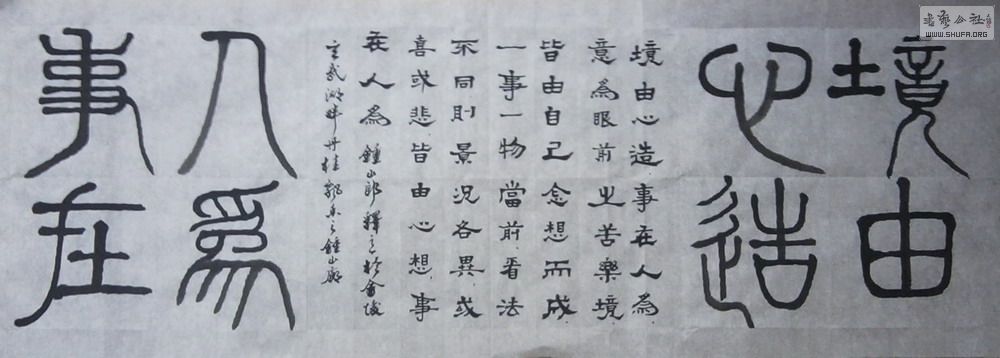 境由
心造
境由心造事在人為
意為眼前之苦樂境
皆由自己念想而成
一事一物當前看法
不同則景況各異或
喜或悲皆由心想事
在人為 鍾山郎釋之於金陵
玄武湖畔丹桂飄香 鍾山郎
人爲
事在
書藝公社
WWW.SHUFA.ORG